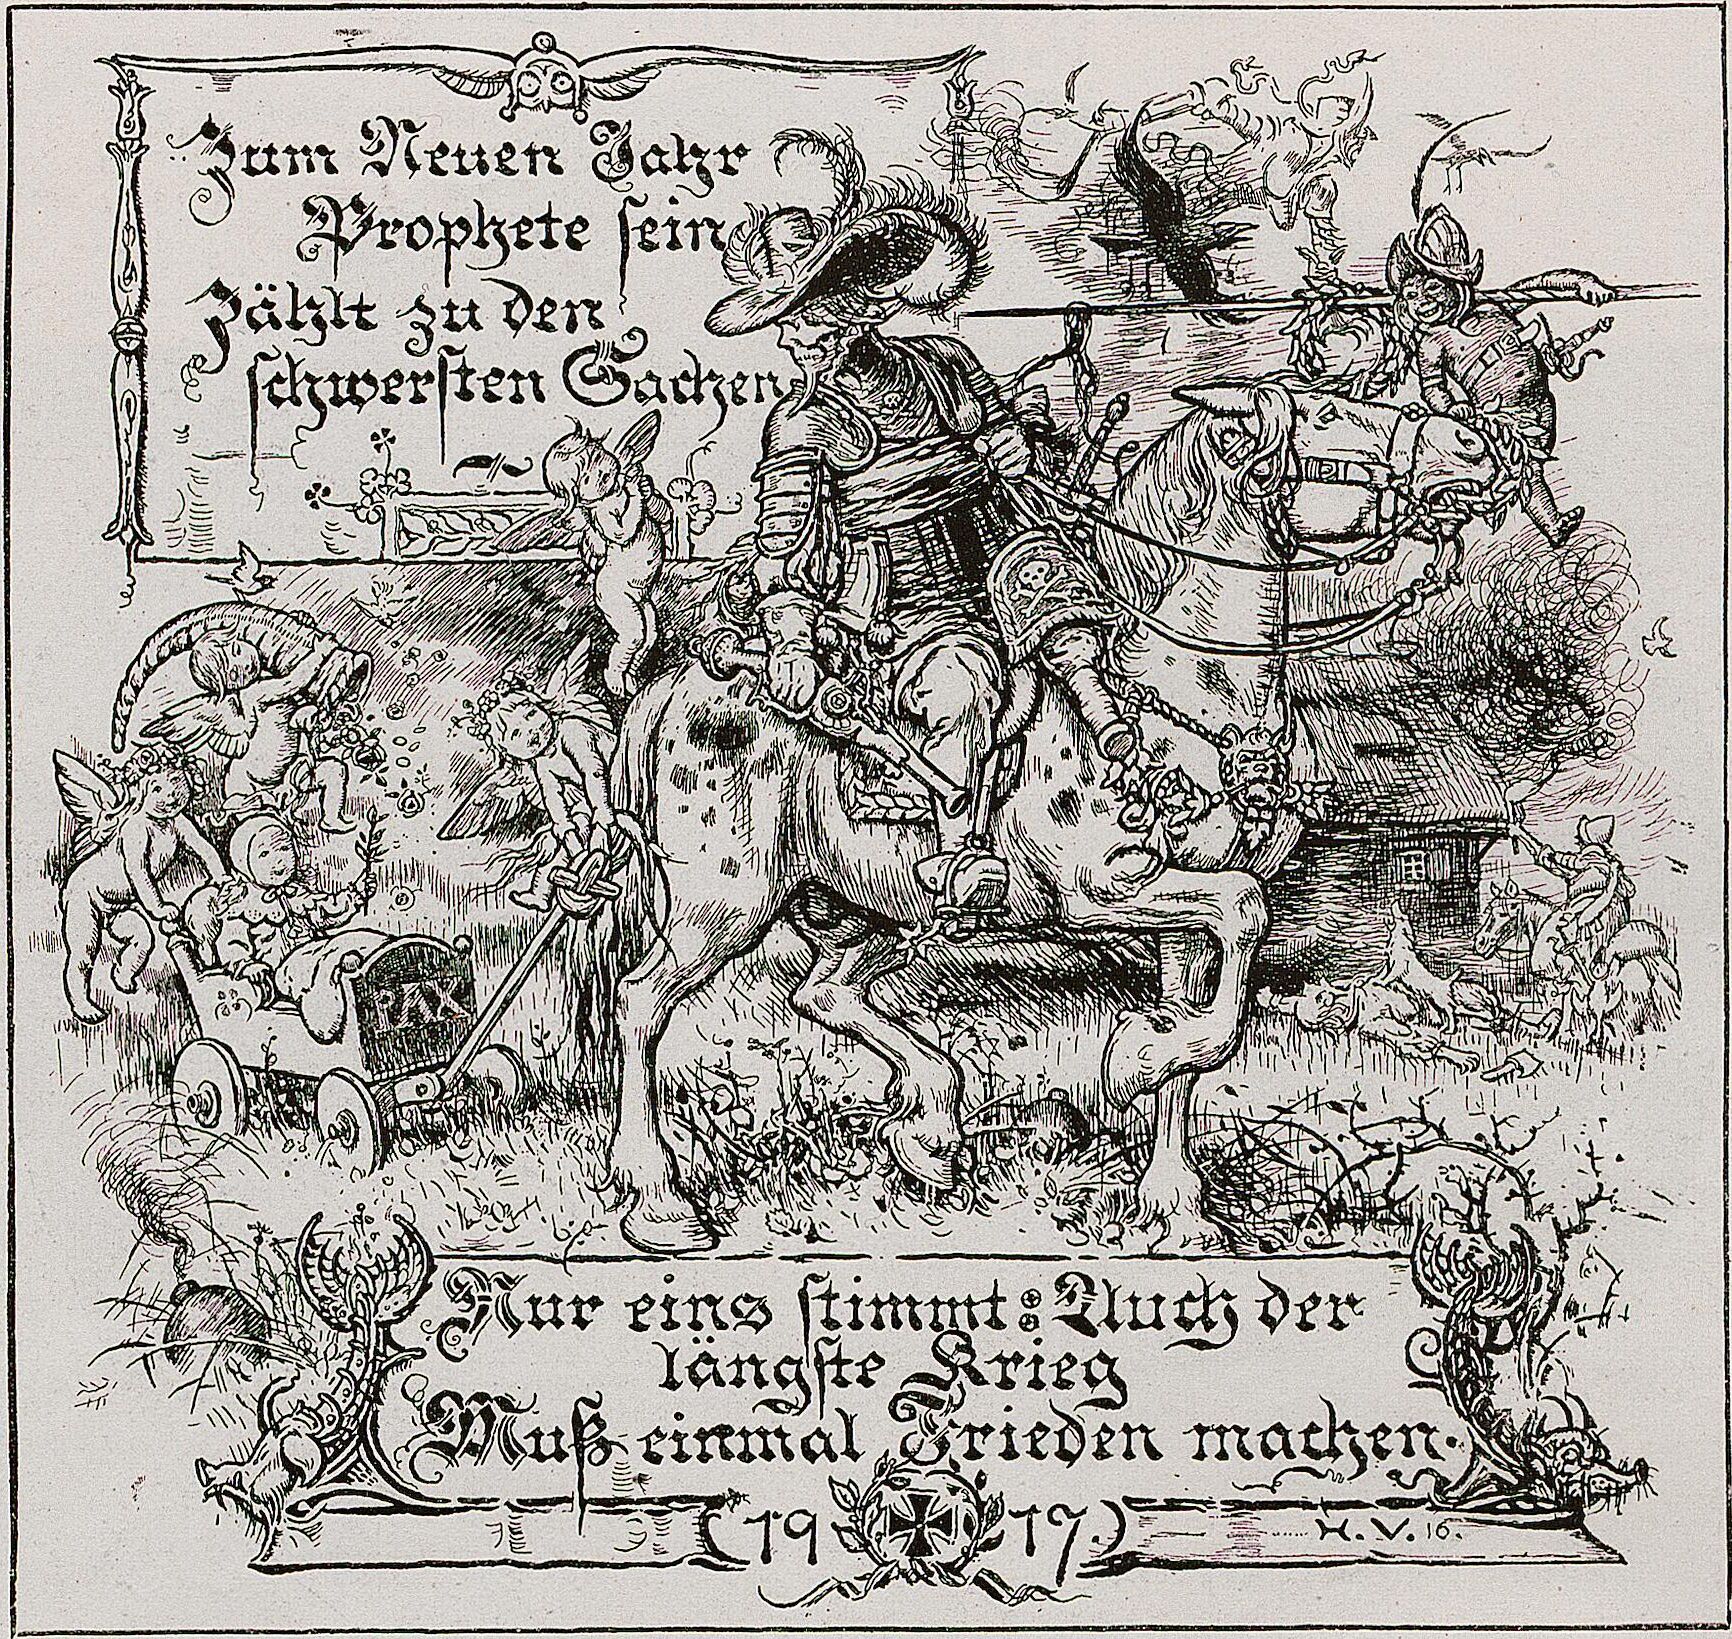 Zum Neuen Jahr
Prophete sein
Zählt zu den
schwersten Sachen
PAX
Nur eins stimmt: Auch der
längste Krieg
Muß einmal Frieden machen.
1917
H. V. 16.